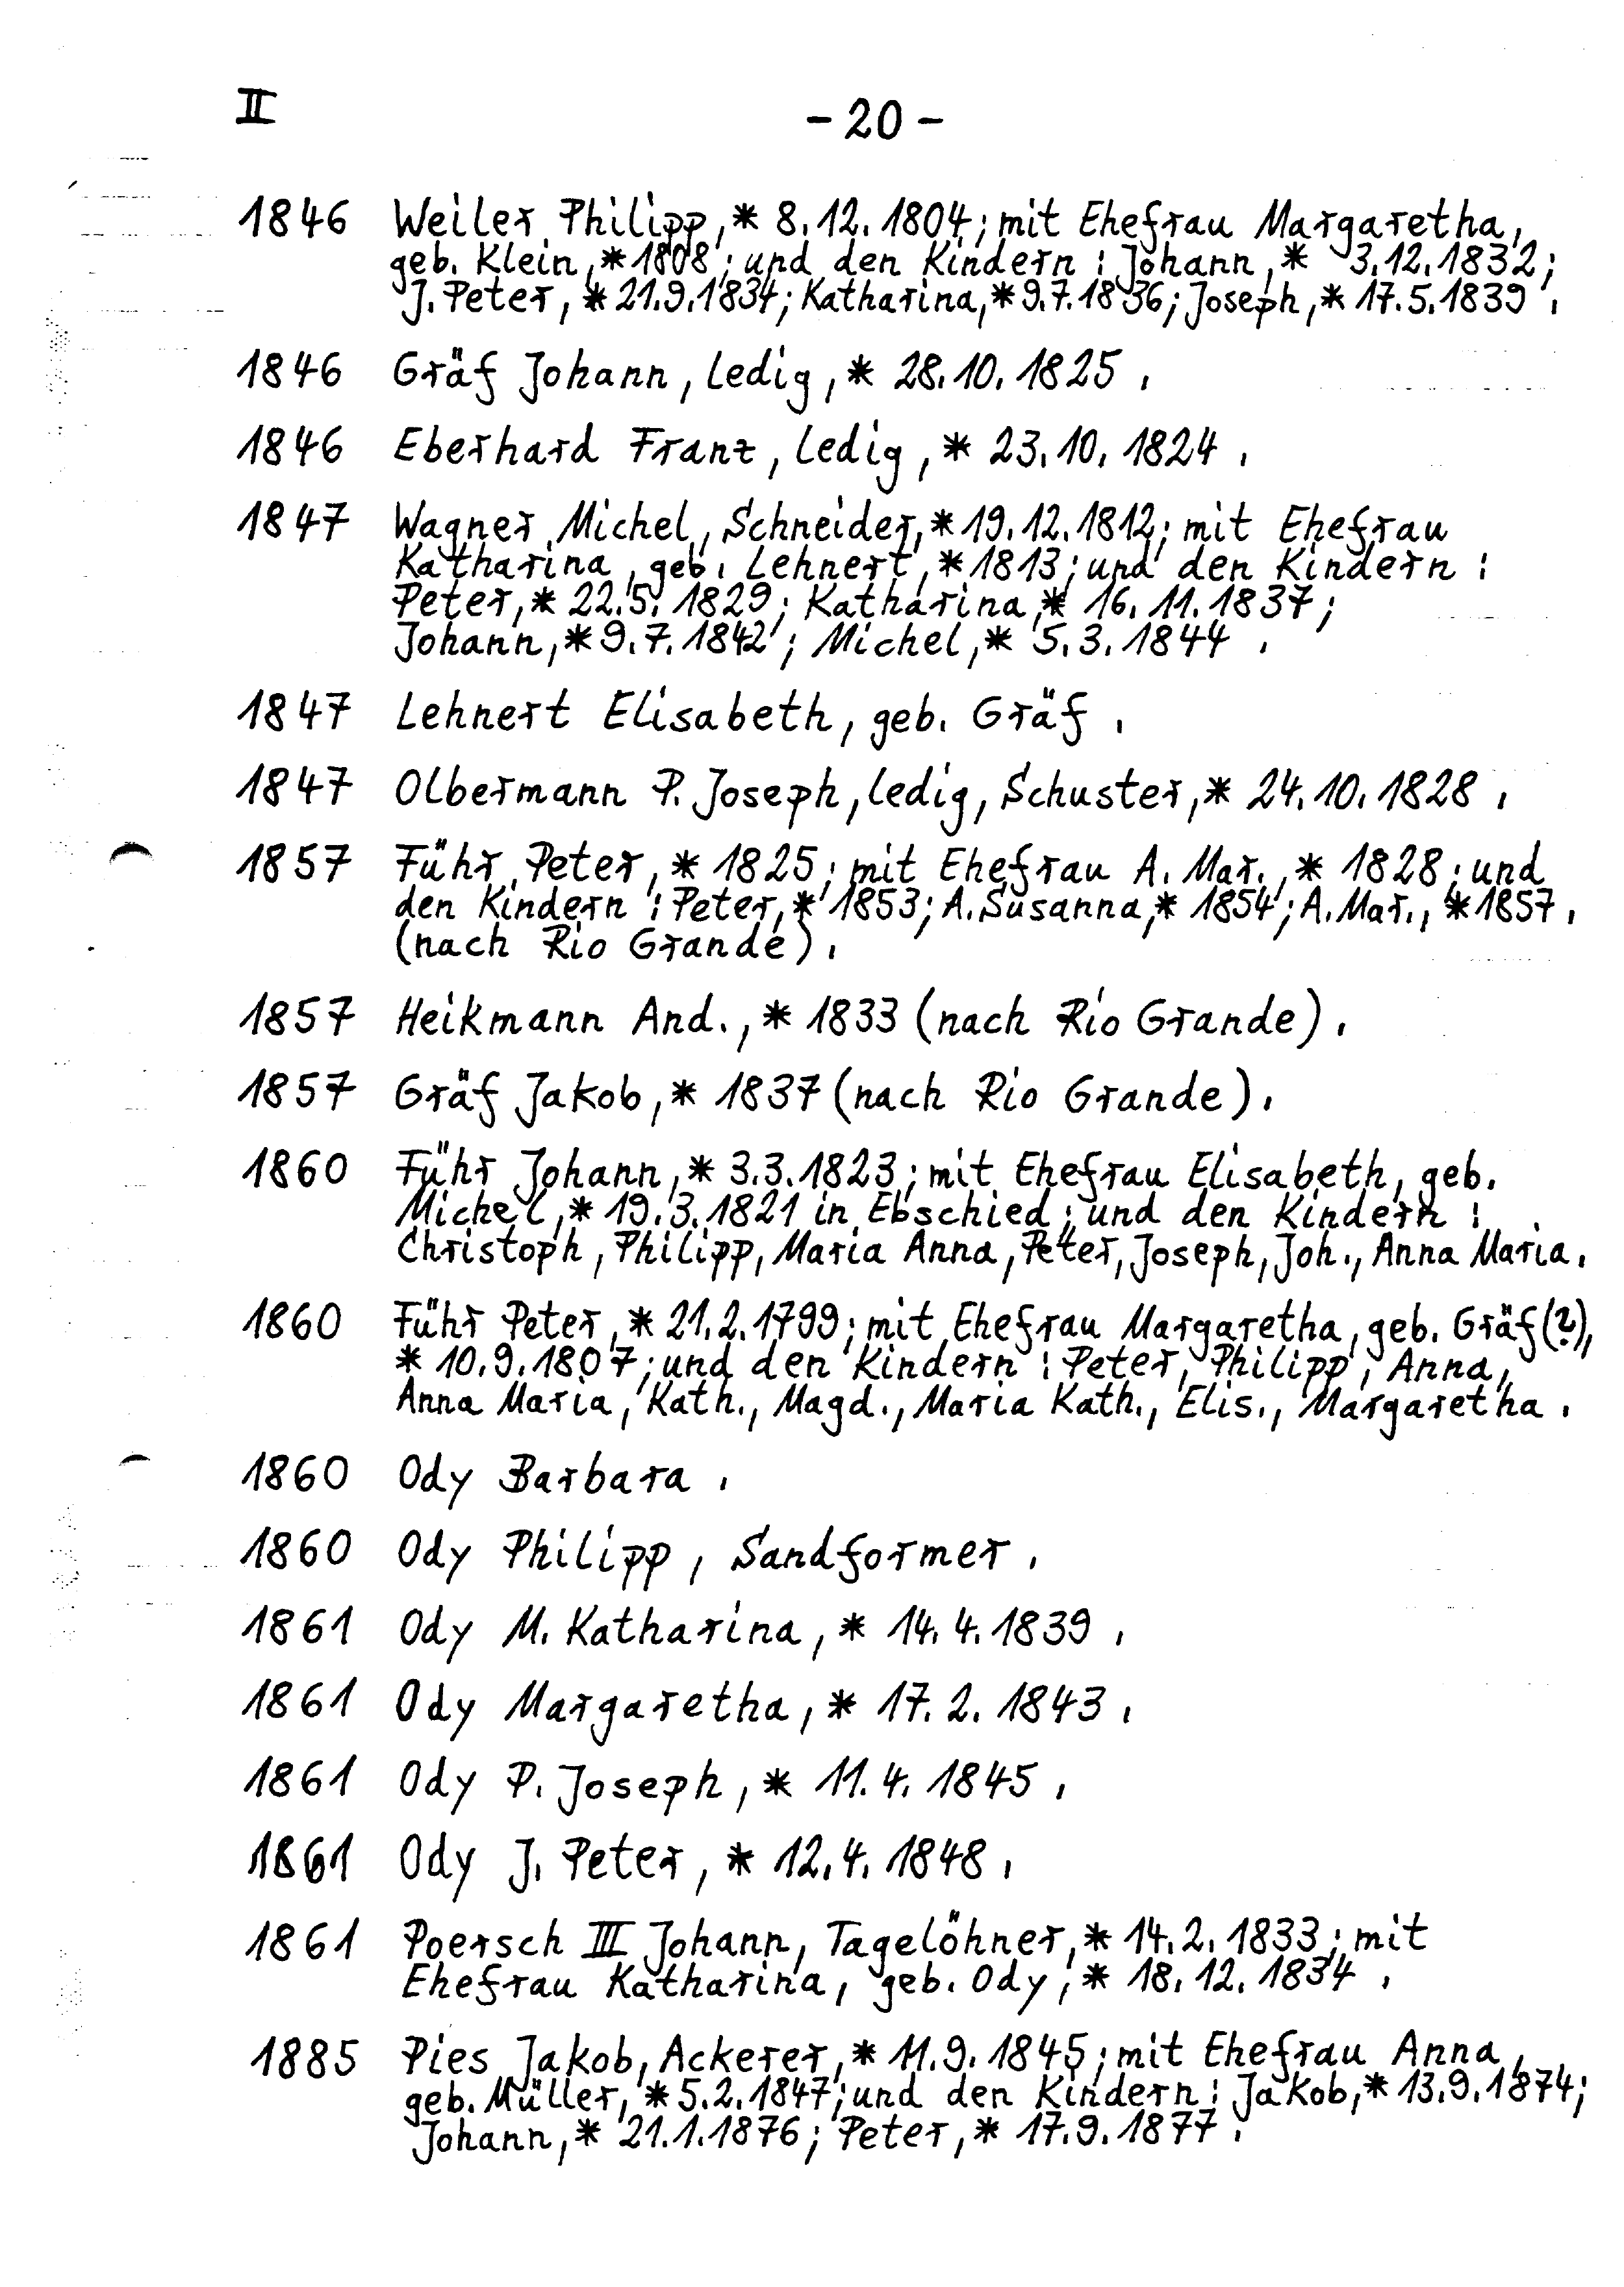 II
- 20 -
1846 Weiler Philipp, * 8.12.1804; mit Ehefrau Margaretha,
geb. Klein, * 1808; und den Kindern: Johann, * 3.12.1832;
J. Peter, * 21.9.1834; Katharina, * 9.7.1836; Joseph, * 17.5.1839.
1846 Gräf Johann, ledig, * 28.10.1825.
1846 Eberhard Franz, ledig, * 23.10.1824.
1847 Wagner Michel, Schneider, * 19.12.1812; mit Ehefrau
Katharina, geb. Lehnert, * 1813; und den Kindern:
Peter, * 22.5.1829; Katharina, * 16.11.1837;
Johann, * 9.7.1842; Michel, * 5.3.1844.
1847 Lehnert Elisabeth, geb. Gräf.
1847 Olbermann P. Joseph, ledig, Schuster, * 24.10.1828.
1857 Führ Peter, * 1825; mit Ehefrau A. Mar., * 1828; und
den Kindern: Peter, * 1853; A. Susanna, * 1854; A. Mar., * 1857.
(nach Rio Grande).
1857 Heikmann And., * 1833 (nach Rio Grande).
1857 Gräf Jakob, * 1837 (nach Rio Grande).
1860 Führ Johann, * 3.3.1823; mit Ehefrau Elisabeth, geb.
Michel, * 19.3.1821 in Ebschied; und den Kindern:
Christoph, Philipp, Maria Anna, Peter, Joseph, Joh., Anna Maria.
1860 Führ Peter, * 21.2.1799; mit Ehefrau Margaretha, geb. Gräf(?),
* 10.9.1807; und den Kindern: Peter, Philipp, Anna,
Anna Maria, Kath., Magd., Maria Kath., Elis., Margaretha.
1860 Ody Barbara.
1860 Ody Philipp, Sandformer.
1861 Ody M. Katharina, * 14.4.1839.
1861 Ody Margaretha, * 17.2.1843.
1861 Ody P. Joseph, * 11.4.1845.
1861 Ody J. Peter, * 12.4.1848.
1861 Poersch III Johann, Tagelöhner, * 14.2.1833; mit
Ehefrau Katharina, geb. Ody, * 18.12.1834.
1885 Pies Jakob, Ackerer, * 11.9.1845; mit Ehefrau Anna,
geb. Müller, * 5.2.1847; und den Kindern: Jakob, * 13.9.1874;
Johann, * 21.1.1876; Peter, * 17.9.1877.